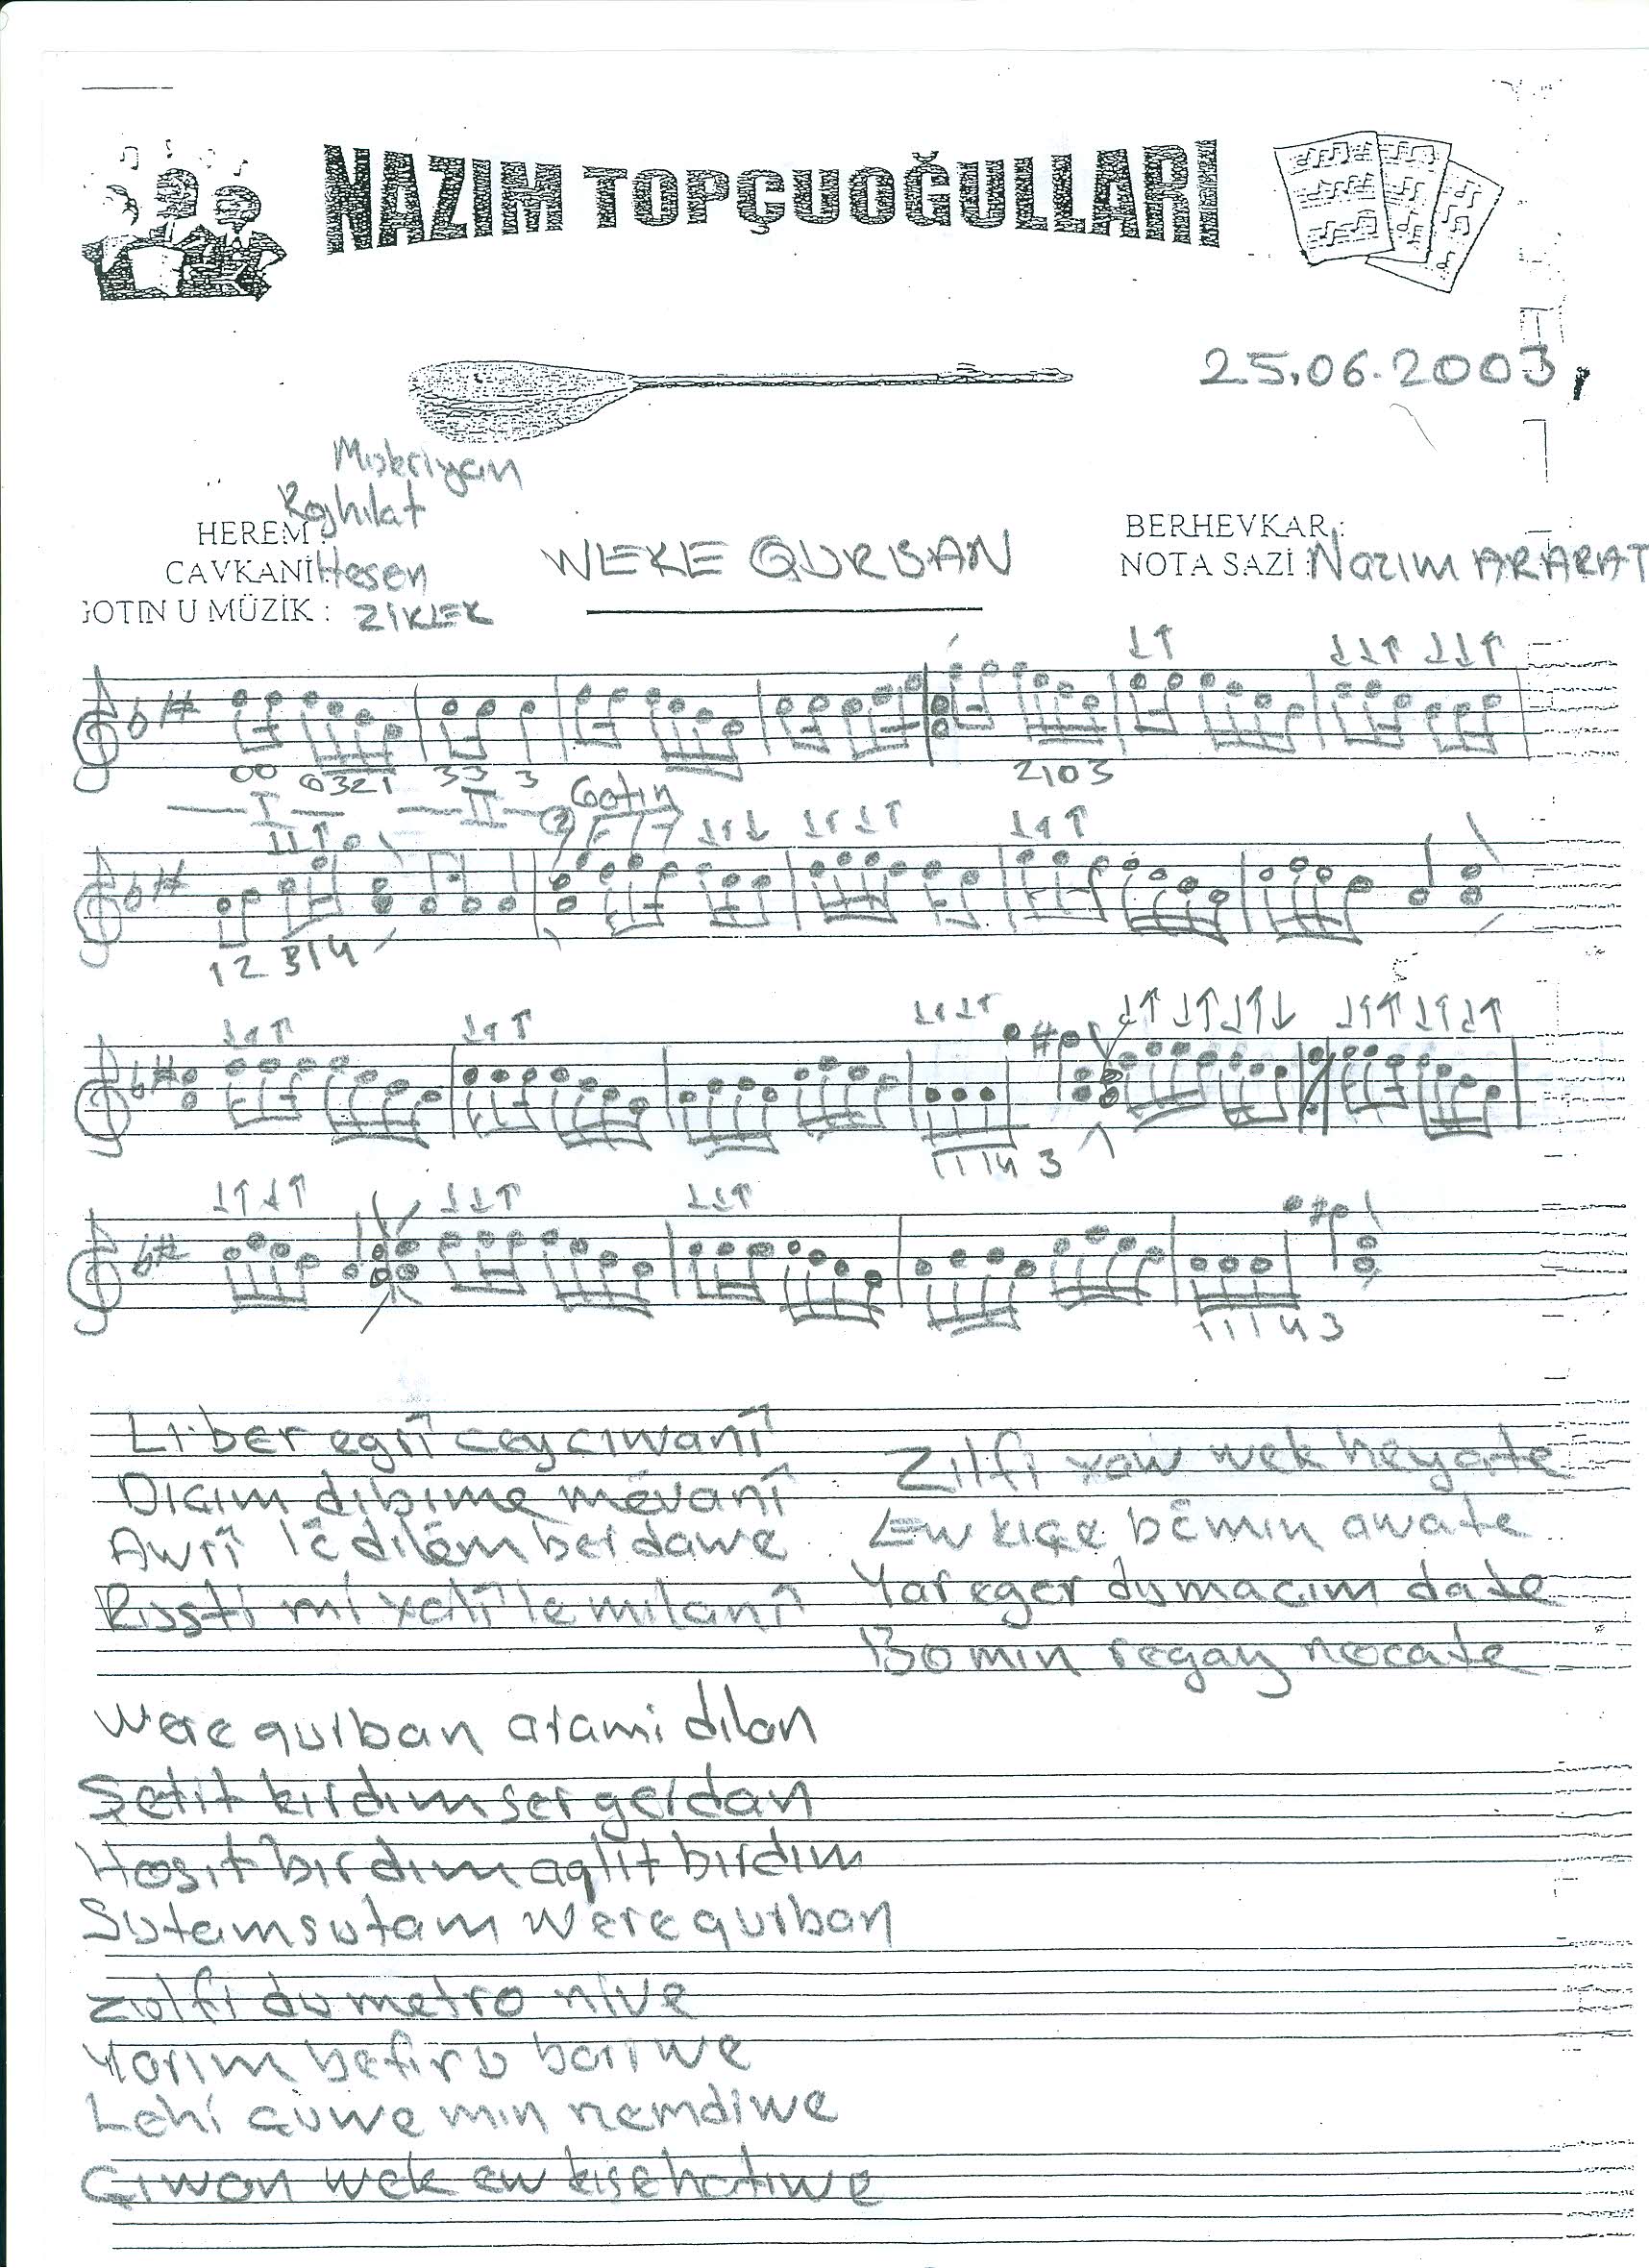 NAZIM TOPÇUOĞULLARI
25.06.2003
Mukriyan
Rojhilat
HEREM :
CAVKANİ: Hesen
GOTIN U MÜZİK : ZİKLEK
WEKE QURBAN
BERHEVKAR :
NOTA SAZİ : Nazım ARARAT
00 0321 33 3
2103
I II Gotin
1 2 3 1 4
1 1 1 4 3
1 1 1 4 3
Li ber egrî cey cıwanî
Dicim dibime mêvanî
Awrî lê dilêm berdawe
Russti mi xalî le milanî
Zılfi xaw wek heyate
Ew kiçe bê min awate
Yar eger du macım date
Bo min regay nocate
Were qurban arami dilan
Şetit kirdim ser gerdan
Hosit birdim aqlit birdim
Sutam sutam were qurban
Zulfi du metro nive
Yarim befir u bariwe
Lehi çuwe min nemdiwe
Çiwan wek ew kise hatiwe